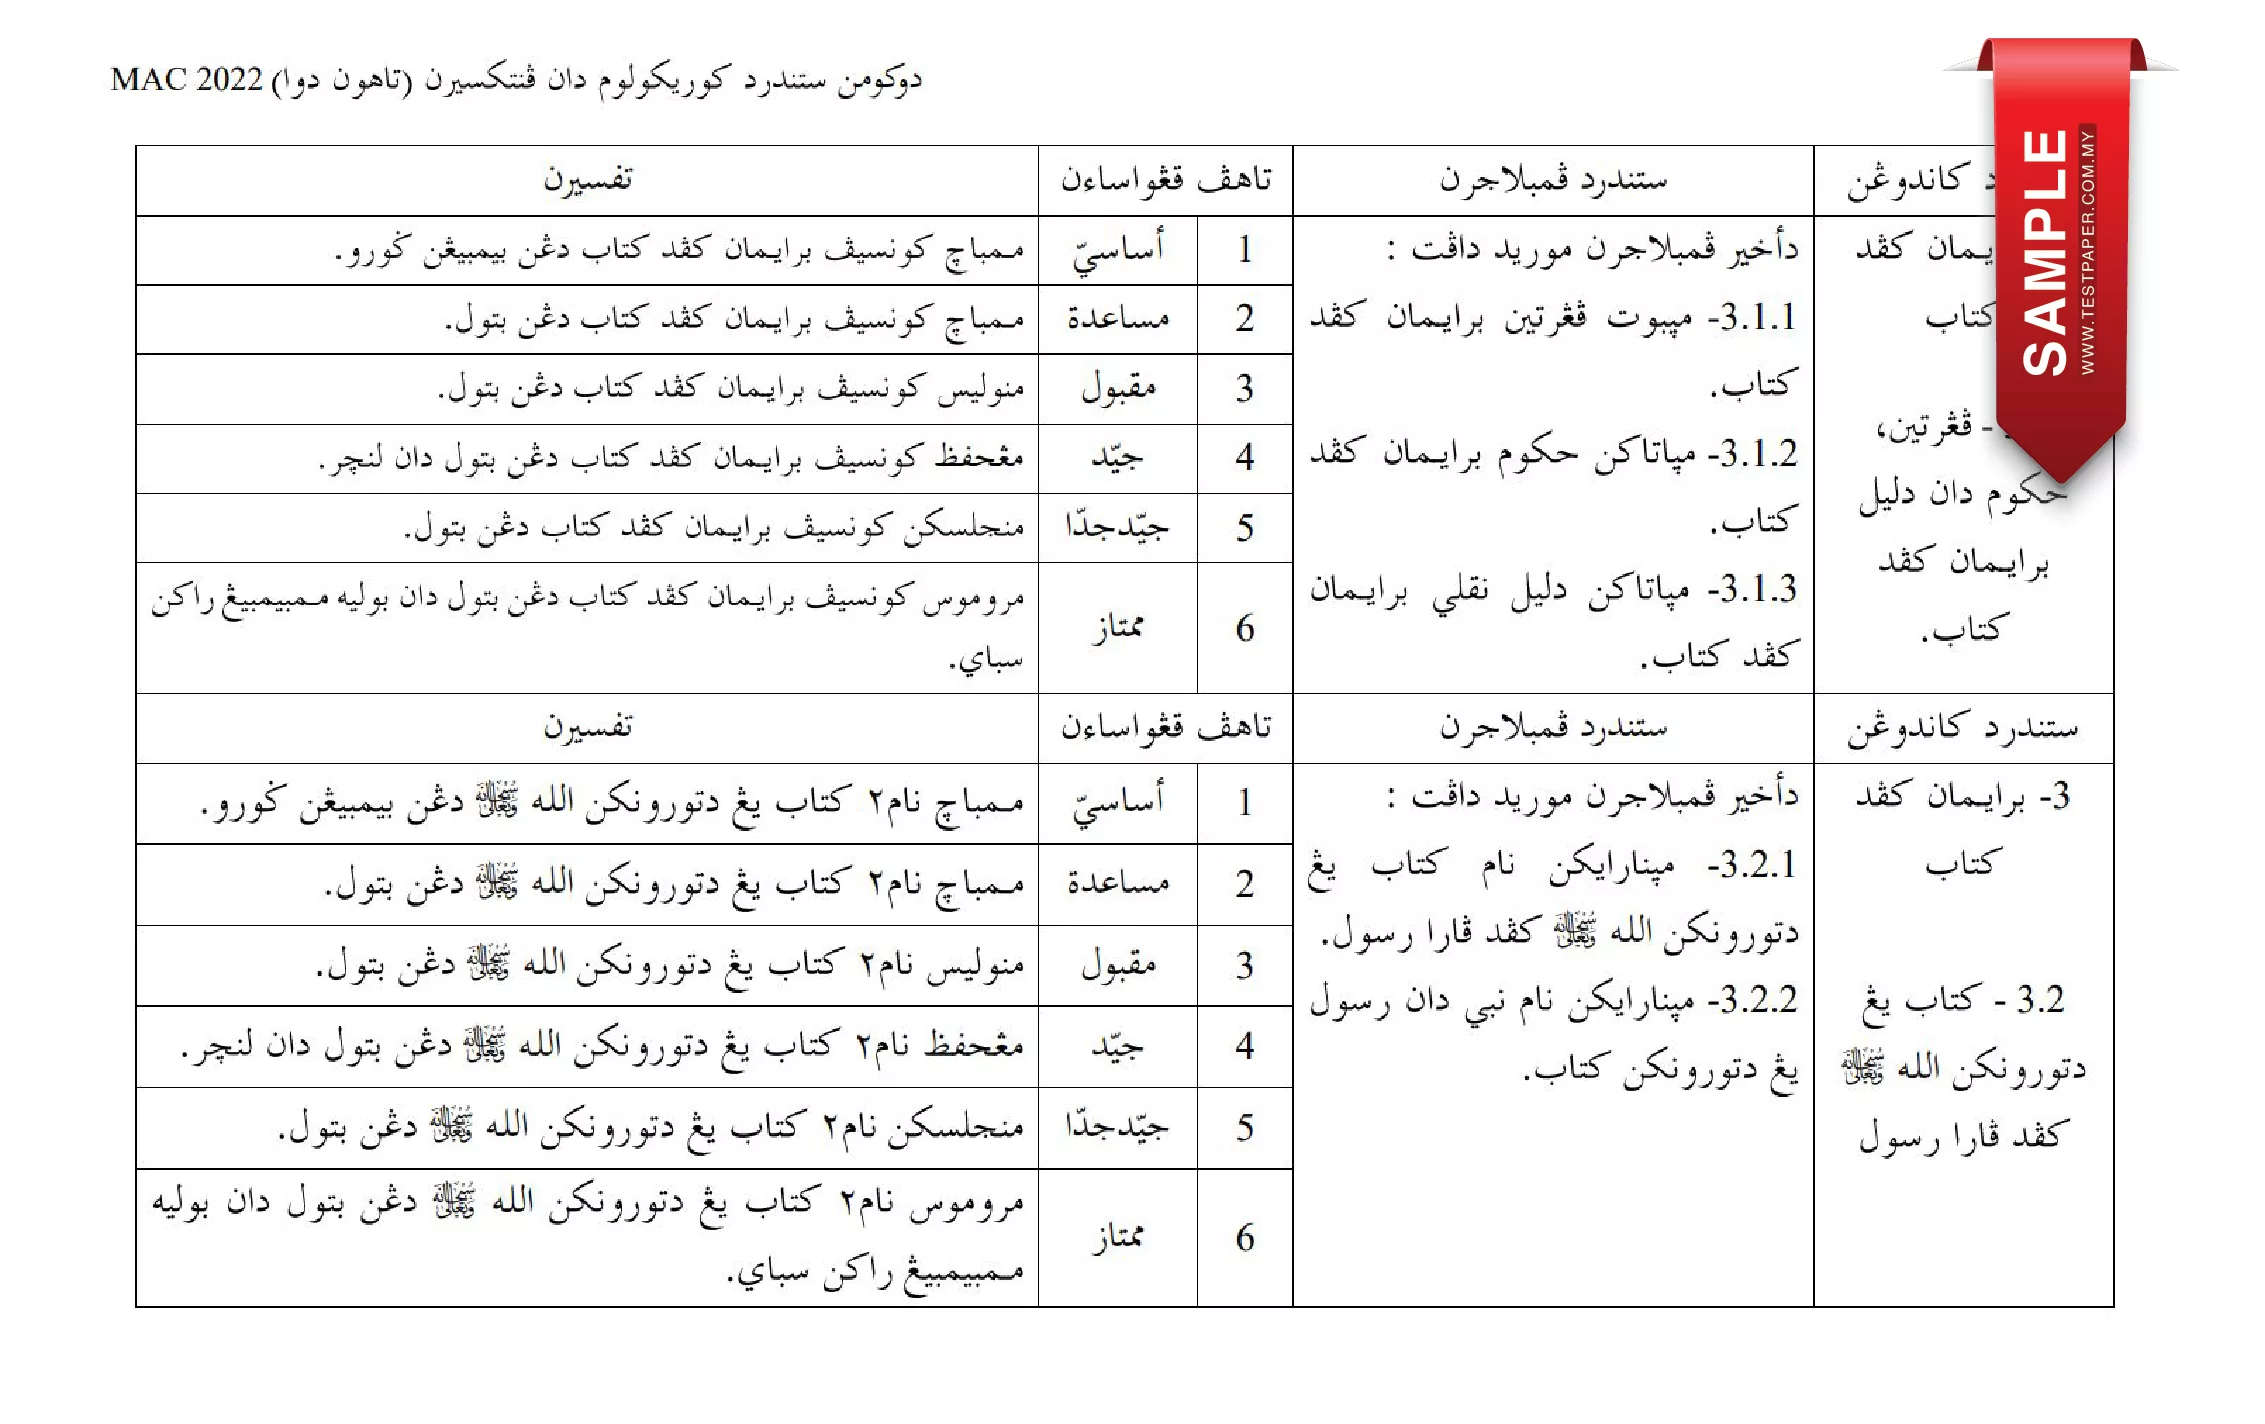 دوكومن ستندرد كوريكولوم دان ڤنتكسيرن (تاهون دوا) MAC 2022
SAMPLE
WWW.TESTPAPER.COM.MY
كاندوڠن
ستندرد ڤمبلاجرن
تاهڤ ڤڠواساءن
تفسيرن
كڤد
كتاب
- ڤڠرتين،
حكوم دان دليل
برايمان كڤد
كتاب.
دأخير ڤمبلاجرن موريد داڤت :
3.1.1- مڽبوت ڤڠرتين برايمان كڤد
كتاب.
3.1.2- مڽاتاكن حكوم برايمان كڤد
كتاب.
3.1.3- مڽاتاكن دليل نقلي برايمان
كڤد كتاب.
1 أساسيّ ممباچ كونسيڤ برايمان كڤد كتاب دڠن بيمبيڠن ݢورو.
2 مساعدة ممباچ كونسيڤ برايمان كڤد كتاب دڠن بتول.
3 مقبول منوليس كونسيڤ برايمان كڤد كتاب دڠن بتول.
4 جيّد مڠحفظ كونسيڤ برايمان كڤد كتاب دڠن بتول دان لنچر.
5 جيّدجدّا منجلسكن كونسيڤ برايمان كڤد كتاب دڠن بتول.
6 ممتاز مروموس كونسيڤ برايمان كڤد كتاب دڠن بتول دان بوليه ممبيمبيڠ راكن
سباي.
ستندرد كاندوڠن
ستندرد ڤمبلاجرن
تاهڤ ڤڠواساءن
تفسيرن
3- برايمان كڤد
كتاب
3.2 - كتاب يڠ
دتورونكن الله سبحانه وتعالى
كڤد ڤارا رسول
دأخير ڤمبلاجرن موريد داڤت :
3.2.1- مڽنارايكن نام كتاب يڠ
دتورونكن الله سبحانه وتعالى كڤد ڤارا رسول.
3.2.2- مڽنارايكن نام نبي دان رسول
يڠ دتورونكن كتاب.
1 أساسيّ ممباچ نام٢ كتاب يڠ دتورونكن الله سبحانه وتعالى دڠن بيمبيڠن ݢورو.
2 مساعدة ممباچ نام٢ كتاب يڠ دتورونكن الله سبحانه وتعالى دڠن بتول.
3 مقبول منوليس نام٢ كتاب يڠ دتورونكن الله سبحانه وتعالى دڠن بتول.
4 جيّد مڠحفظ نام٢ كتاب يڠ دتورونكن الله سبحانه وتعالى دڠن بتول دان لنچر.
5 جيّدجدّا منجلسكن نام٢ كتاب يڠ دتورونكن الله سبحانه وتعالى دڠن بتول.
6 ممتاز مروموس نام٢ كتاب يڠ دتورونكن الله سبحانه وتعالى دڠن بتول دان بوليه
ممبيمبيڠ راكن سباي.